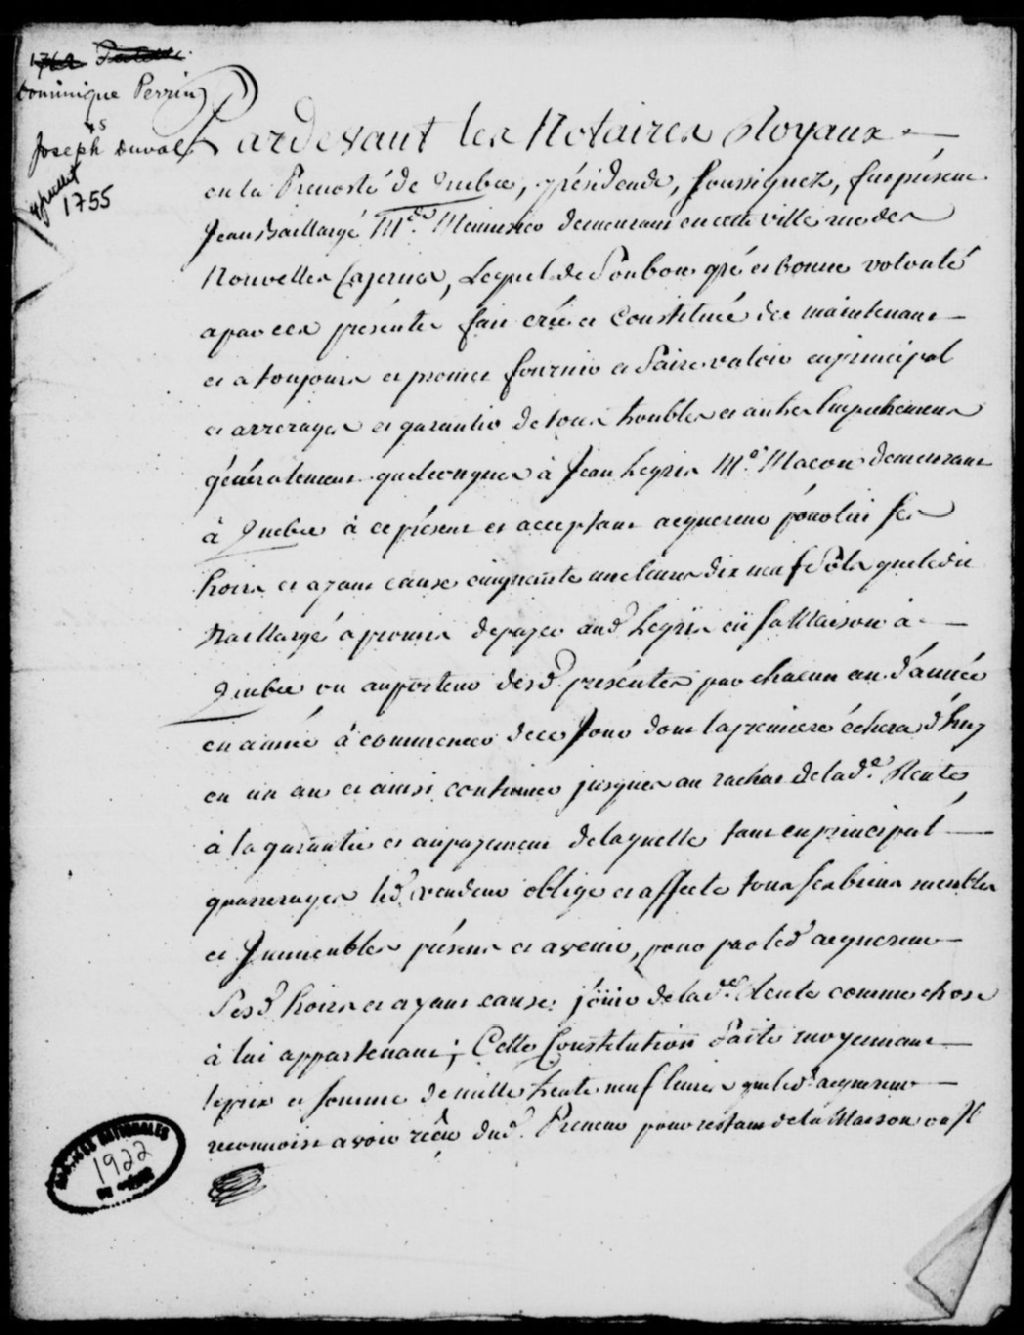 Dominique Perrin
vs
Joseph Duval
9 juillet
1755
Pardevant les Notaires Royaux
en la Prevosté de Quebec, y résidents, soussignez, fut présent
Jean Baillargé Md. Menuisier demeurant en cette ville rue des
Nouvelles Casernes, Lequel de Son bon gré et bonne volonté
a par ces présentes fait créé et Constitué des maintenant
et a toujours et promet fournir et faire valoir en principal
et arrerages et garantir de tous troubles et autres Empechemens
généralement quelconques à Jean Legris Me. Macon demeurant
à Quebec à ce présent et acceptant acquereur pour lui ses
hoirs et ayans cause cinquante une livres dix neuf Sols que ledit
Baillargé a promis de payer aud. Legris en sa Maison à
Quebec ou au porteur desd. présentes par chacun an d'année
en année à commencer de ce Jour dont la premiere échera d'huy
en un an et ainsi continuer jusques au rachat de lade. Rente
à la garantie et au payement de laquelle tant en principal
qu'arrerages led. vendeur oblige et affecte tous ses biens meubles
et Immeubles présens et avenir, pour par led. acquereur
Sesd. hoirs et ayans cause joüir de lade. Rente comme chose
à lui appartenant; Cette Constitution faite moyennant
le prix et somme de mille trente neuf livres que led. acquereur
reconnoist avoir
pour restant de la Maison
ARCHIVES NATIONALES
1922